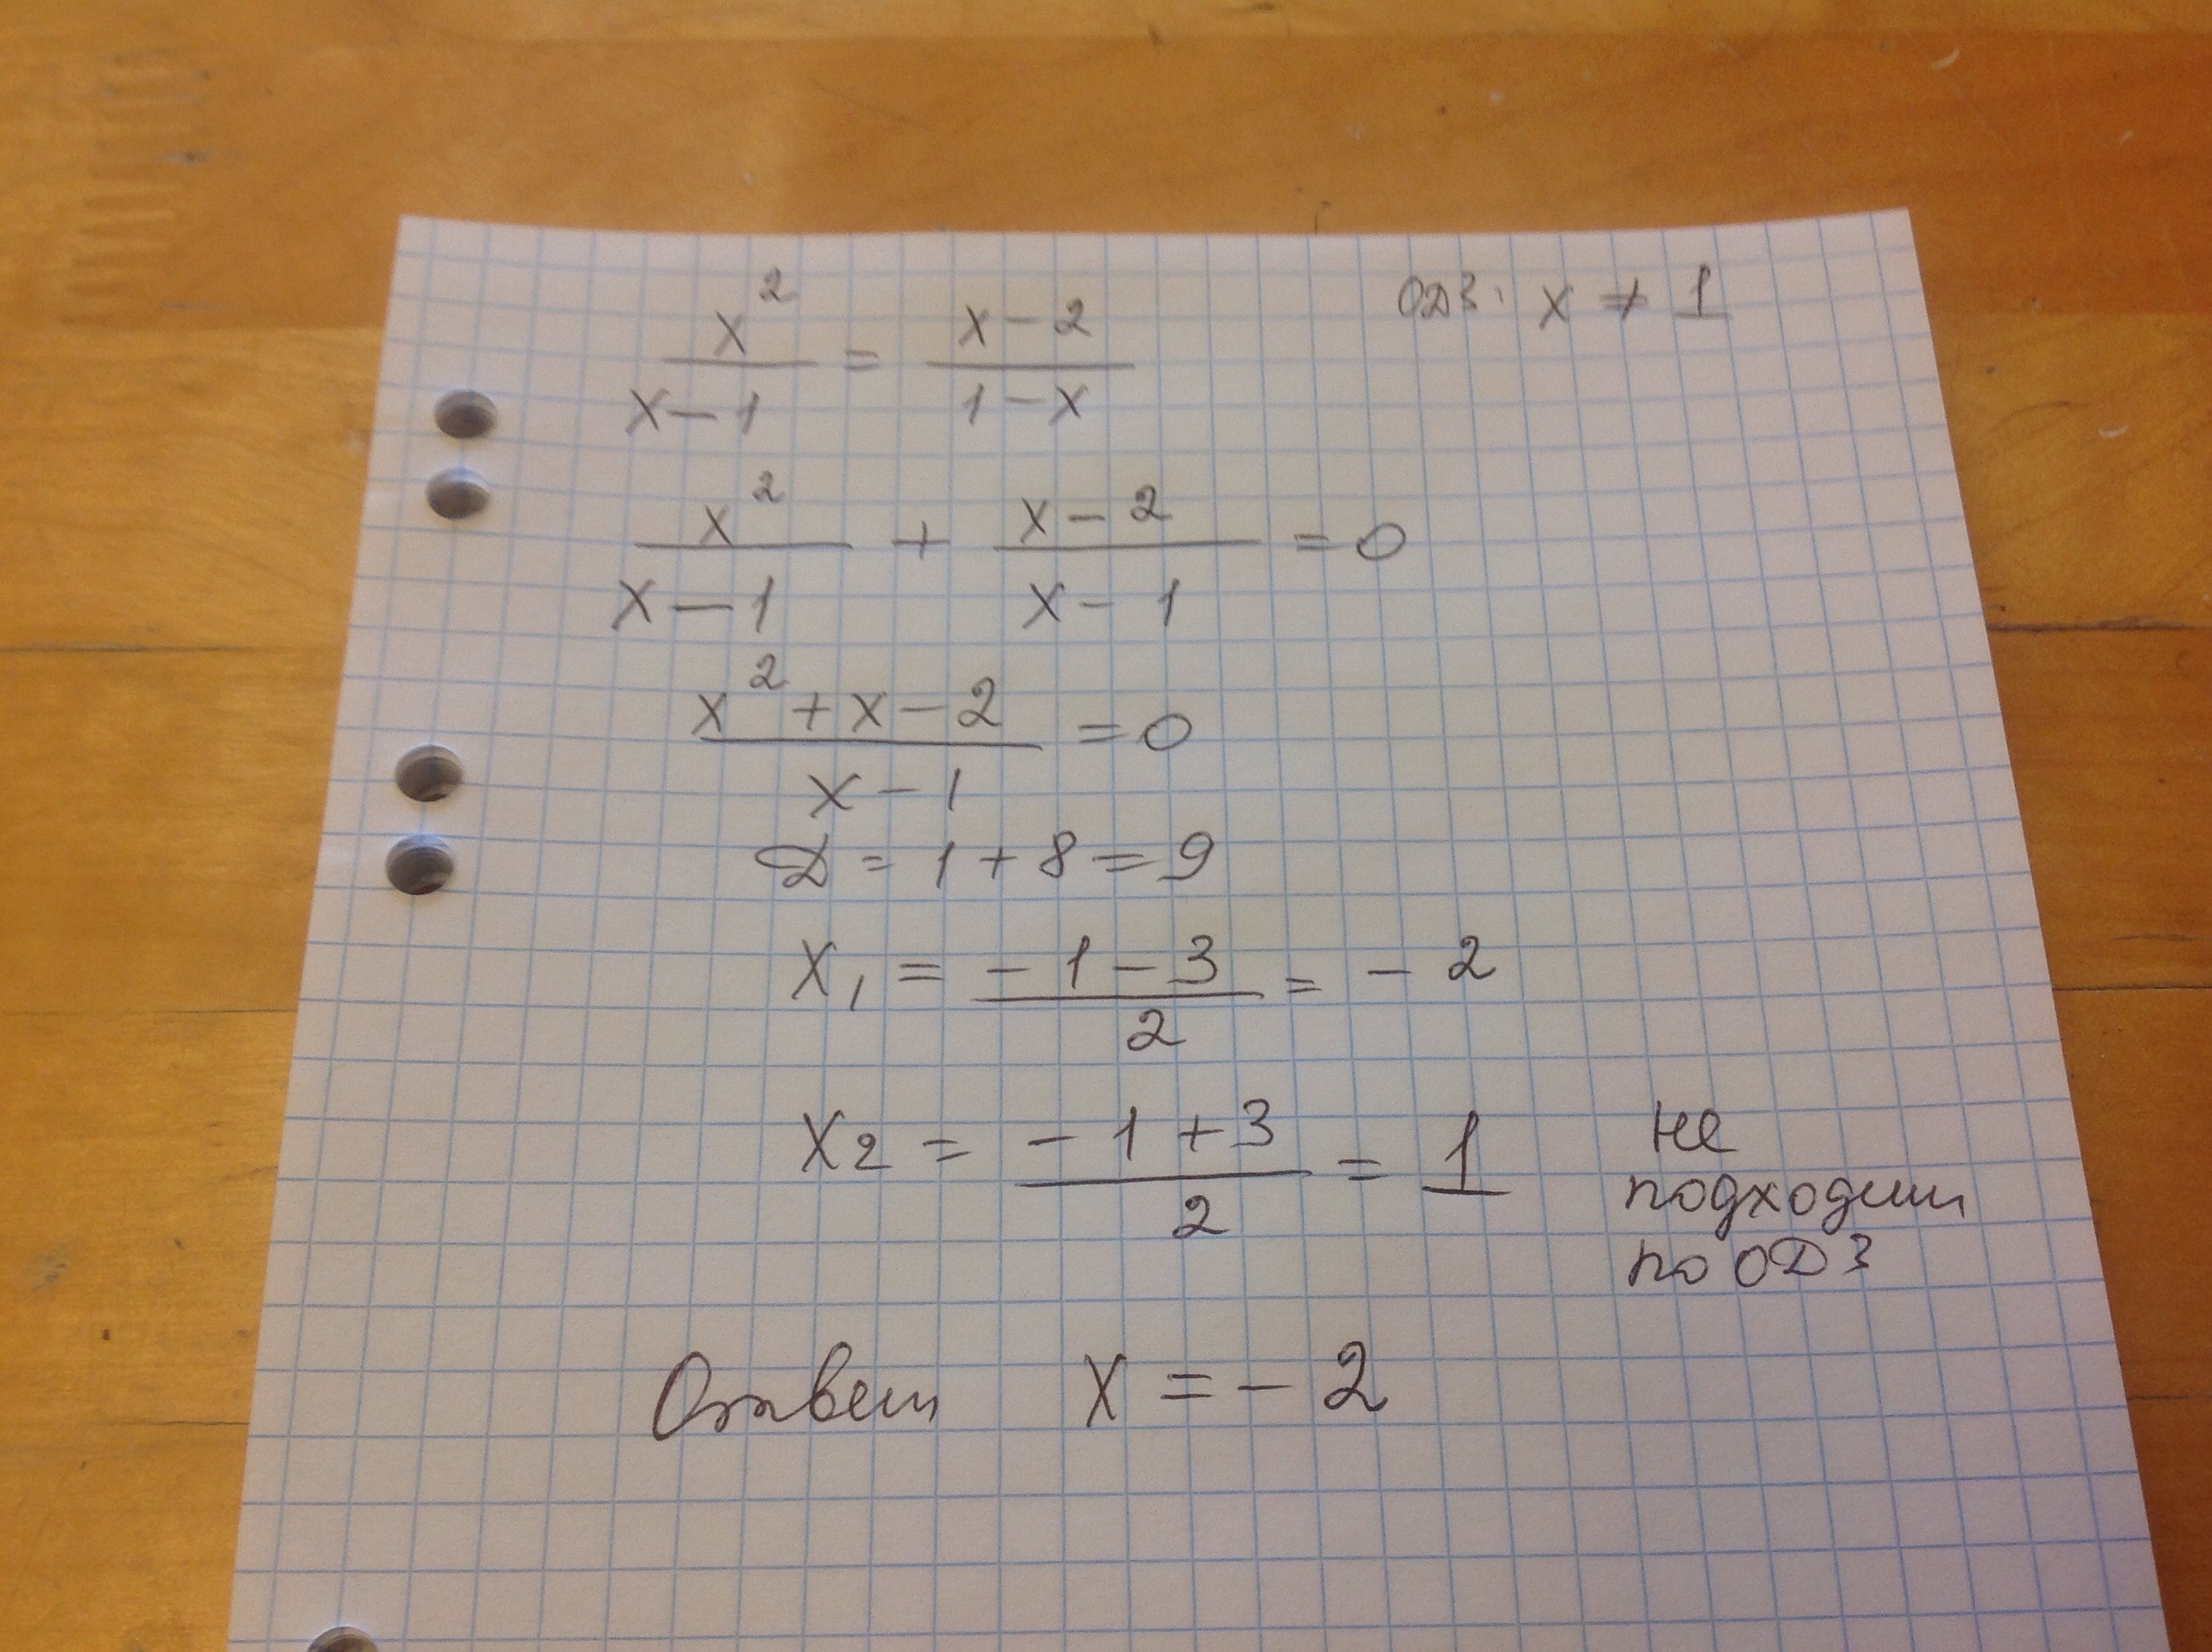 x²/(x-1) = (x-2)/(1-x) ОДЗ: x ≠ 1
x²/(x-1) + (x-2)/(x-1) = 0
(x²+x-2)/(x-1) = 0
D = 1+8 = 9
x₁ = (-1-3)/2 = -2
x₂ = (-1+3)/2 = 1 не
подходит
по ОДЗ
Ответ x = -2